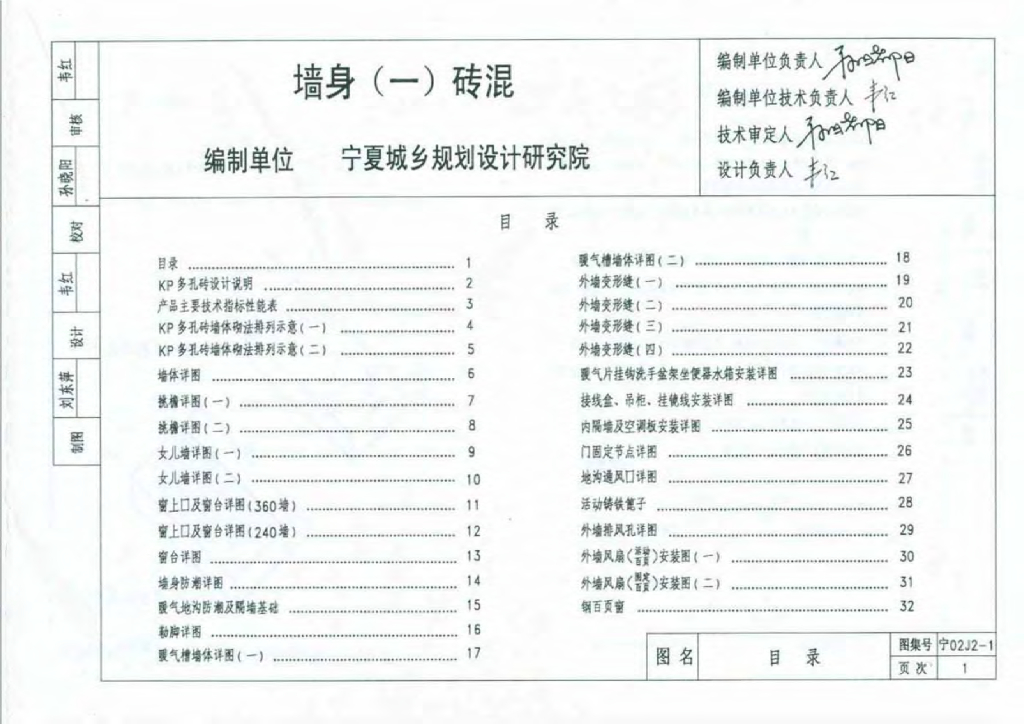 墙身（一）砖混
编制单位 宁夏城乡规划设计研究院
编制单位负责人
编制单位技术负责人 韦红
技术审定人
设计负责人 韦红
韦红
审核
孙晓阳
校对
韦红
设计
刘东萍
制图
目 录
目录 1
KP多孔砖设计说明 2
产品主要技术指标性能表 3
KP多孔砖墙体砌法排列示意(一) 4
KP多孔砖墙体砌法排列示意(二) 5
墙体详图 6
挑檐详图(一) 7
挑檐详图(二) 8
女儿墙详图(一) 9
女儿墙详图(二) 10
窗上口及窗台详图(360墙) 11
窗上口及窗台详图(240墙) 12
窗台详图 13
墙身防潮详图 14
暖气地沟防潮及隔墙基础 15
勒脚详图 16
暖气槽墙体详图(一) 17
暖气槽墙体详图(二) 18
外墙变形缝(一) 19
外墙变形缝(二) 20
外墙变形缝(三) 21
外墙变形缝(四) 22
暖气片挂钩洗手盆架坐便器水箱安装详图 23
接线盒、吊柜、挂镜线安装详图 24
内隔墙及空调板安装详图 25
门固定节点详图 26
地沟通风口详图 27
活动铸铁篦子 28
外墙排风孔详图 29
外墙风扇(活动百页)安装图(一) 30
外墙风扇(固定百页)安装图(二) 31
钢百页窗 32
图名 目 录 图集号 宁02J2-1
页次 1